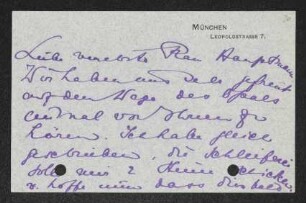 MÜNCHEN
LEOPOLDSTRASSE 7.
Liebe verehrte Frau Hauptmann
Wir haben uns sehr gefreut
auf dem Wege des
einmal von Ihnen zu
hören. Ich habe gleich
geschrieben, die
soll mir 2 schicken
u. hoffe nun dass